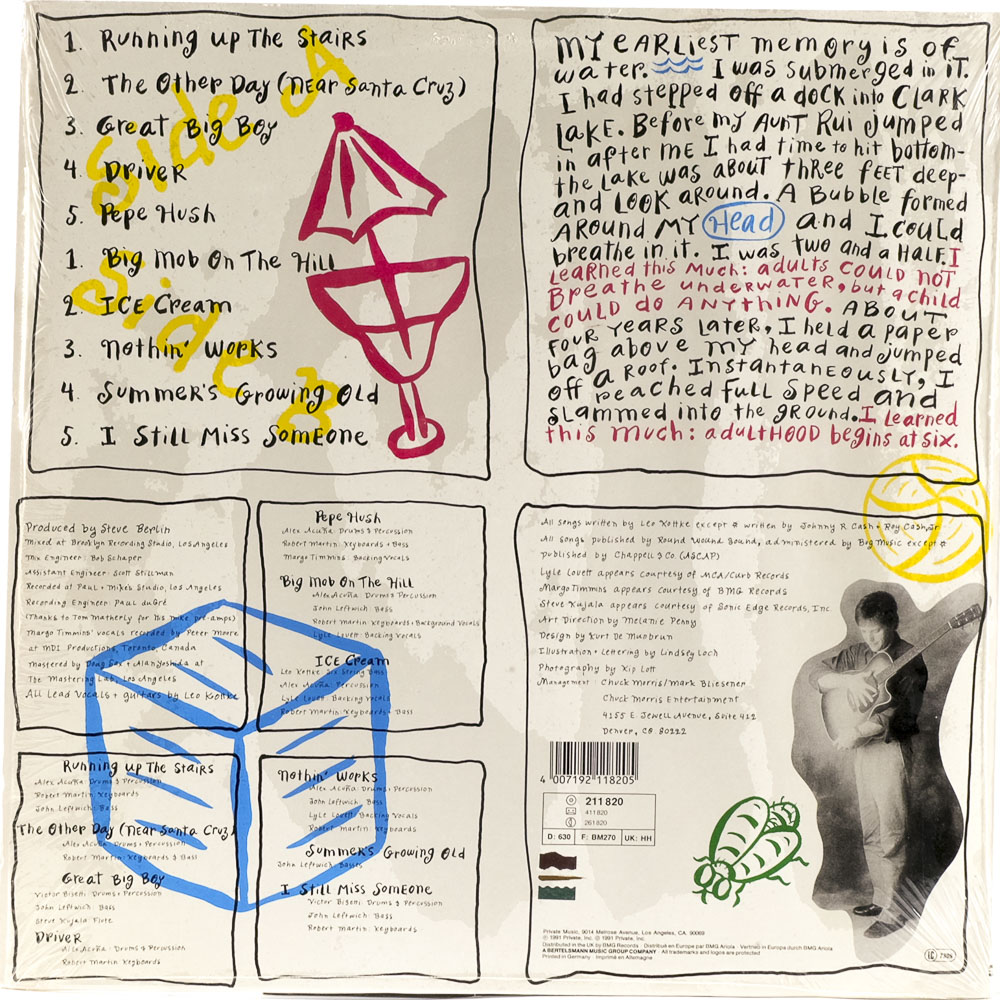 Side A
1. Running up The Stairs
2. The Other Day (near Santa Cruz)
3. Great Big Boy
4. Driver
5. Pepe Hush
Side B
1. Big Mob On The Hill
2. ICE Cream
3. Nothin' Works
4. Summer's Growing Old
5. I Still Miss Someone
My earliest memory is of
water. I was submerged in it.
I had stepped off a dock into Clark
Lake. Before my Aunt Rui jumped
in after me I had time to hit bottom-
the lake was about three feet deep-
and look around. A Bubble formed
around my Head and I could
breathe in it. I was two and a half. I
learned this much: adults could not
Breathe underwater, but a child
could do anything. About
four years later, I held a paper
bag above my head and jumped
off a roof. Instantaneously, I
reached full speed and
slammed into the ground. I learned
this much: adulthood begins at six.
Produced by Steve Berlin
Mixed at Brooklyn Recording Studio, Los Angeles
Mix Engineer: Bob Schaper
Assistant Engineer: Scott Stillman
Recorded at Paul + Mike's Studio, Los Angeles
Recording Engineer: Paul duGré
(Thanks to Tom Matherly for his mike pre-amps)
Margo Timmins' vocals recorded by Peter Moore
at MDI Productions, Toronto, Canada
Mastered by Doug Sax + Alan Yoshida at
The Mastering Lab, Los Angeles
All Lead Vocals + guitars by Leo Kottke
Pepe Hush
Alex Acuña: Drums & Percussion
Robert Martin: Keyboards + Bass
Margo Timmins: Backing Vocals
Big Mob On The Hill
Alex Acuña: Drums & Percussion
John Leftwich: Bass
Robert Martin: Keyboards + Background Vocals
Lyle Lovett: Backing Vocals
ICE Cream
Leo Kottke: Six String Bass
Alex Acuña: Percussion
Lyle Lovett: Backing Vocals
Robert Martin: Keyboards + Bass
Running up The Stairs
Alex Acuña: Drums & Percussion
Robert Martin: Keyboards
John Leftwich: Bass
The Other Day (near Santa Cruz)
Alex Acuña: Drums + Percussion
Robert Martin: Keyboards & Bass
Great Big Boy
Victor Bisetti: Drums + Percussion
John Leftwich: Bass
Steve Kujala: Flute
Driver
Alex Acuña: Drums + Percussion
Robert Martin: Keyboards
Nothin' Works
Alex Acuña: Drums + Percussion
John Leftwich: Bass
Lyle Lovett: Backing Vocals
Robert Martin: Keyboards
Summer's Growing Old
John Leftwich: Basses
I Still Miss Someone
Victor Bisetti: Drums & Percussion
John Leftwich: Bass
Robert Martin: Keyboards
All songs written by Leo Kottke except * written by Johnny R. Cash + Roy Cash, Jr
All songs published by Round Wound Sound, administered by Bug Music except *
published by Chappell & Co (ASCAP)
Lyle Lovett appears courtesy of MCA/Curb Records
Margo Timmins appears courtesy of BMG Records
Steve Kujala appears courtesy of Sonic Edge Records, Inc.
Art Direction by Melanie Penny
Design by Kurt De Munbrun
Illustration + Lettering by Lindsey Loch
Photography by Kip Lott
Management: Chuck Morris/Mark Bliesener
Chuck Morris Entertainment
4155 E Jewell Avenue, Suite 412
Denver, CO 80222
4 007192 118205
211 820
411 820
261 820
D: 630 F: BM270 UK: HH
Private Music, 9014 Melrose Avenue, Los Angeles, CA. 90069
℗ 1991 Private, Inc. © 1991 Private, Inc.
Distributed in the UK by BMG Records · Distribué en Europe par BMG Ariola · Vertrieb in Europa durch BMG Ariola
A BERTELSMANN MUSIC GROUP COMPANY · All trademarks and logos are protected
Printed in Germany · Imprimé en Allemagne